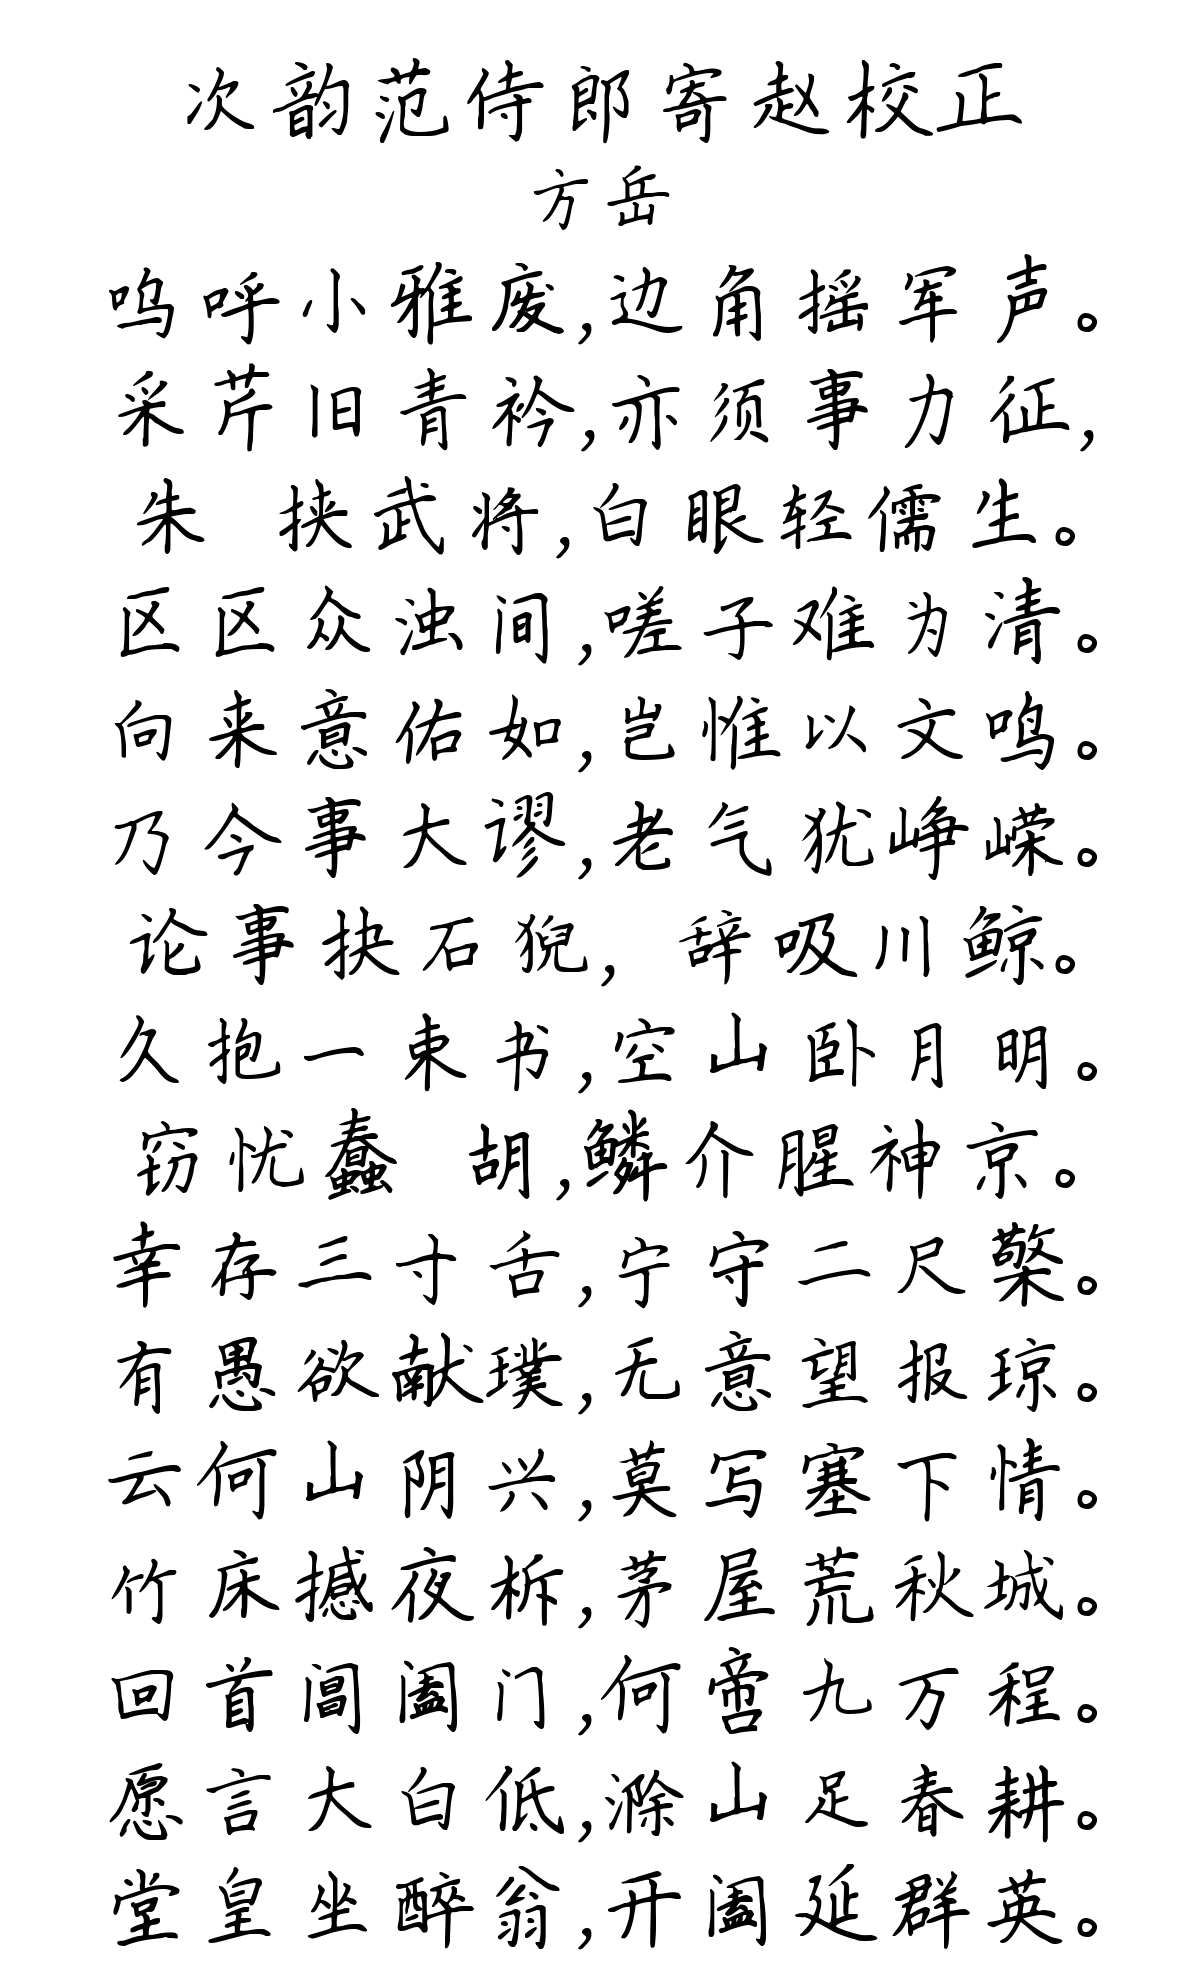 次韵范侍郎寄赵校正
方岳
呜呼小雅废,边角摇军声。
采芹旧青衿,亦须事力征,
朱 挟武将,白眼轻儒生。
区区众浊间,嗟子难为清。
向来意佑如,岂惟以文鸣。
乃今事大谬,老气犹峥嵘。
论事抉石猊, 辞吸川鲸。
久抱一束书,空山卧月明。
窃忧蠢 胡,鳞介腥神京。
幸存三寸舌,宁守二尺檠。
有愚欲献璞,无意望报琼。
云何山阴兴,莫写塞下情。
竹床撼夜柝,茅屋荒秋城。
回首阊阖门,何啻九万程。
愿言大白低,滁山足春耕。
堂皇坐醉翁,开阖延群英。